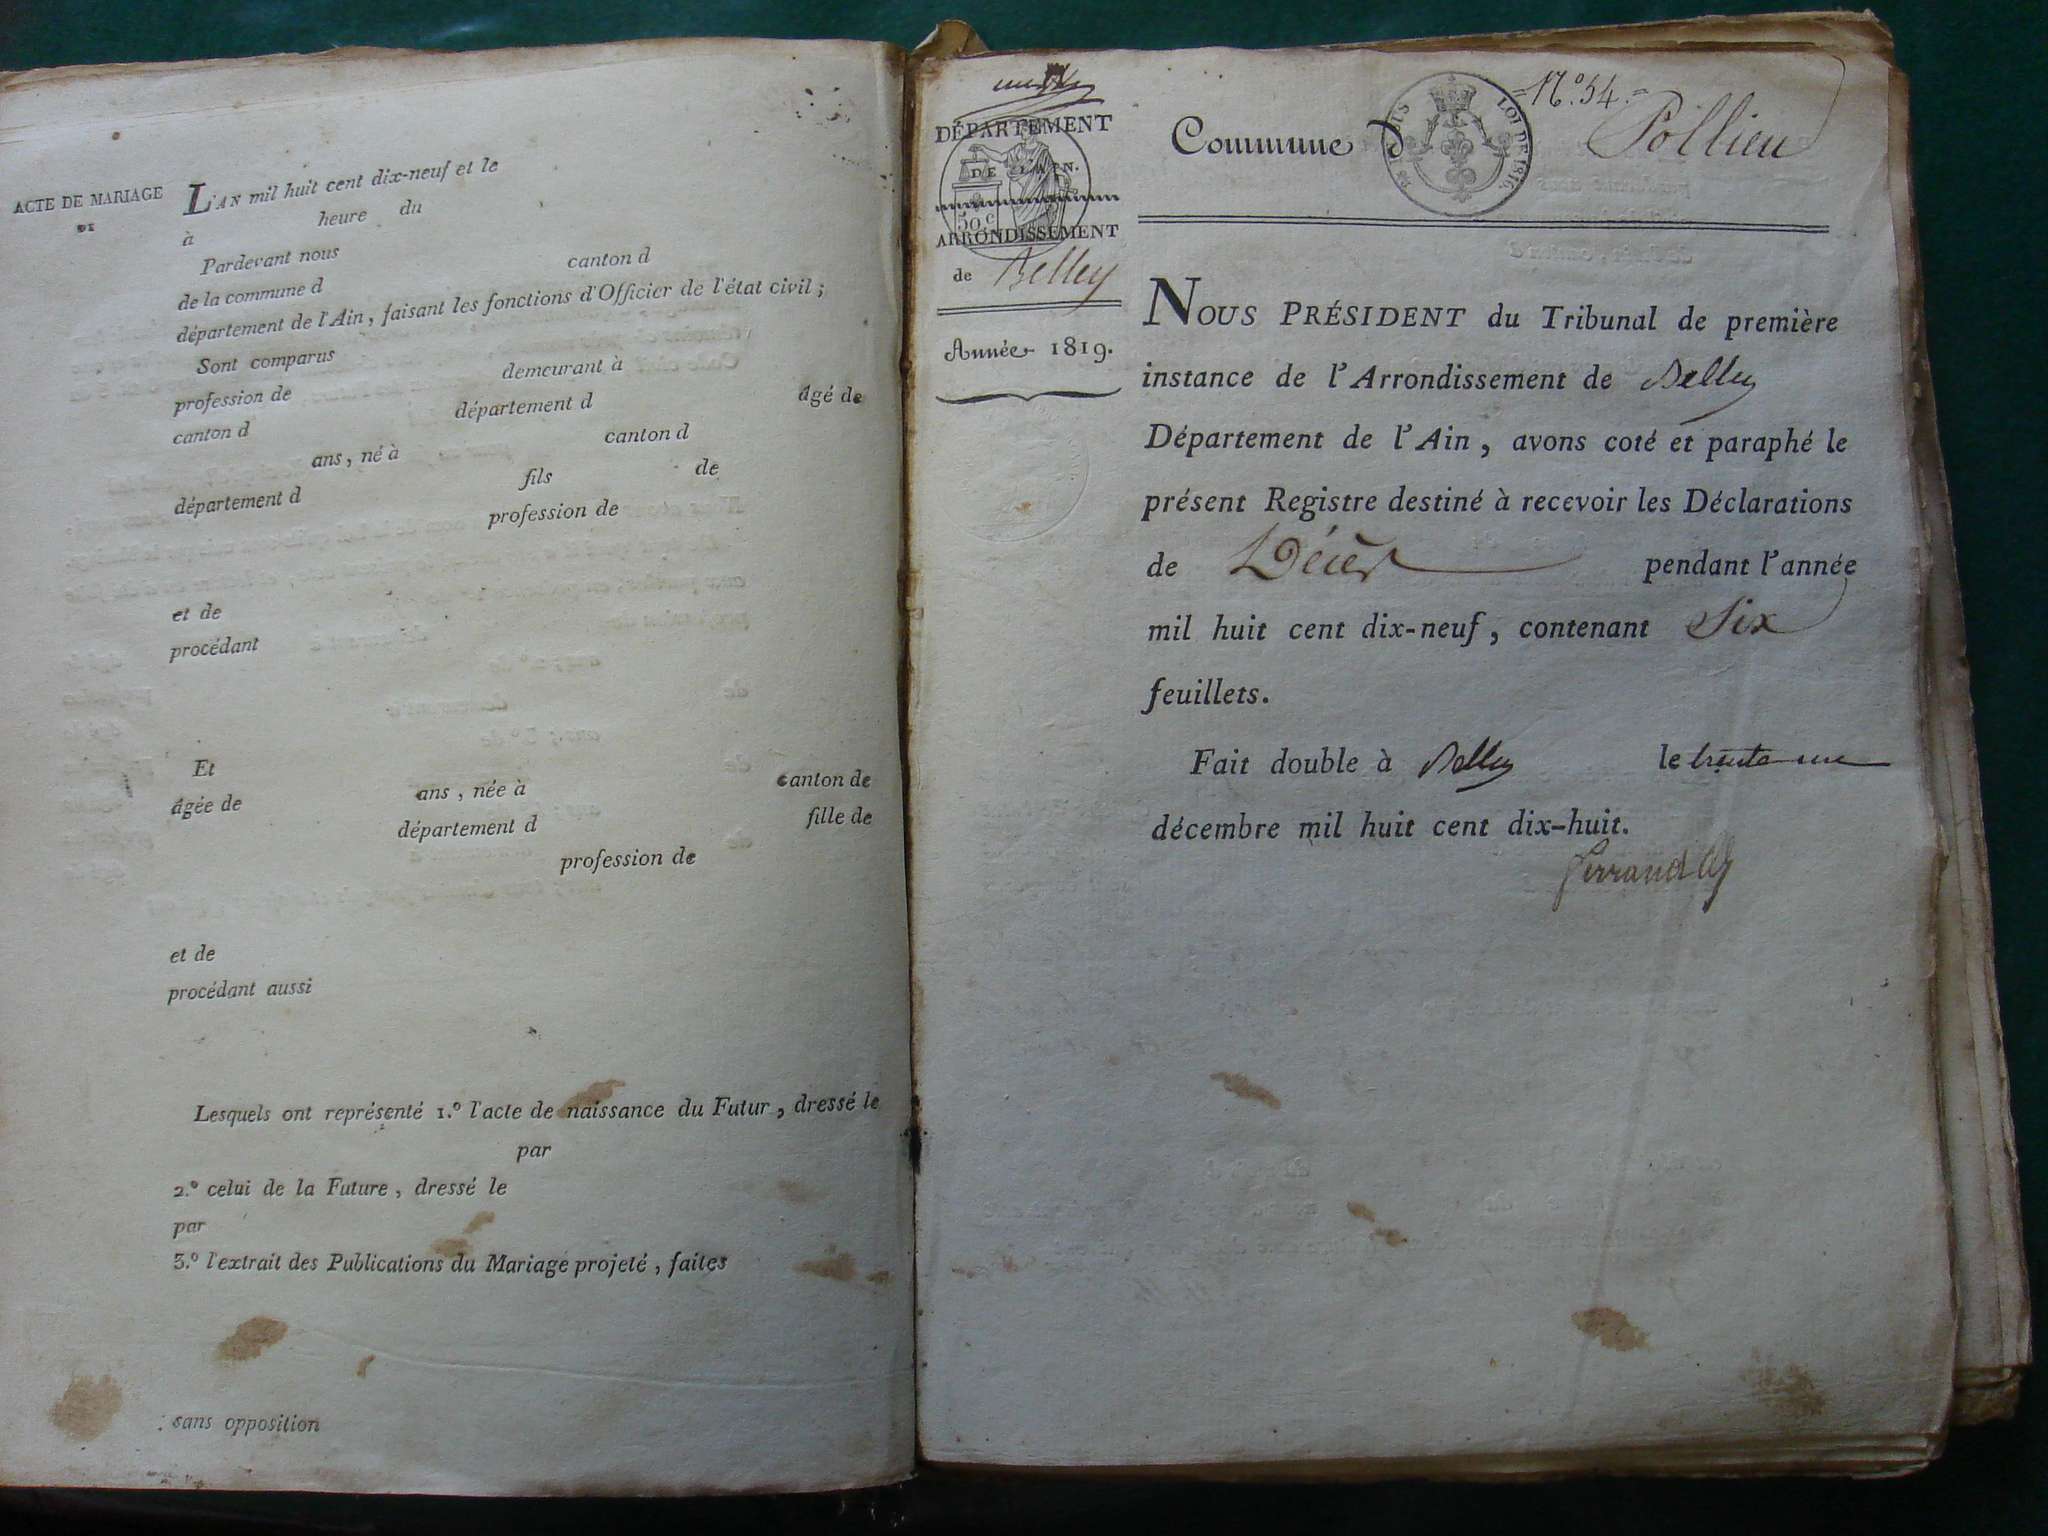 ACTE DE MARIAGE
DE
L'AN mil huit cent dix-neuf et le
à heure du
Pardevant nous
de la commune d canton d
département de l'Ain, faisant les fonctions d'Officier de l'état civil;
Sont comparus
profession de demeurant à
canton d département d âgé de
ans, né à canton d
département d fils de
profession de
et de
procédant
Et
âgée de ans, née à canton de
département d fille de
profession de
et de
procédant aussi
Lesquels ont représenté 1.º l'acte de naissance du Futur, dressé le
par
2.º celui de la Future, dressé le
par
3.º l'extrait des Publications du Mariage projeté, faites
sans opposition
DÉPARTEMENT
DE L'AIN.
50 c
ARRONDISSEMENT
de Belley
Année 1819.
N.º 54.
LOI DE 1816.
Commune d Pollieu
NOUS PRÉSIDENT du Tribunal de première
instance de l'Arrondissement de Belley
Département de l'Ain, avons coté et paraphé le
présent Registre destiné à recevoir les Déclarations
de Décès pendant l'année
mil huit cent dix-neuf, contenant Six
feuillets.
Fait double à Belley le trente un
décembre mil huit cent dix-huit.